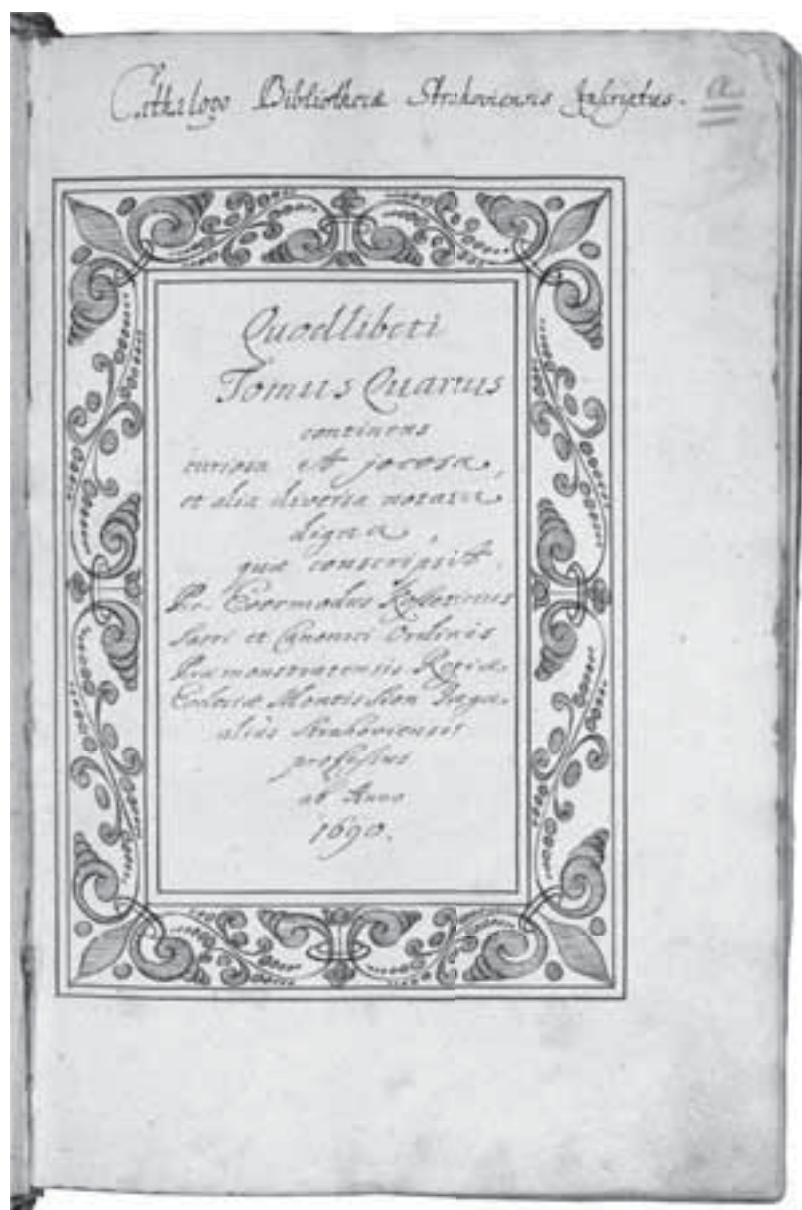 Cathalogo Bibliothecæ Strahoviensis Inscriptus.
Quodlibeti
Tomus Quartus
continens
curiosa et jocosa,
et alia diversa notatu
digna,
quæ conscripsit
Fr. Evermodus
Sacri et Canonici Ordinis
Præmonstratensis Regiæ
Ecclesiæ Montis Sion Pragæ
aliàs Strahoviensis
professus
ab Anno
1690.